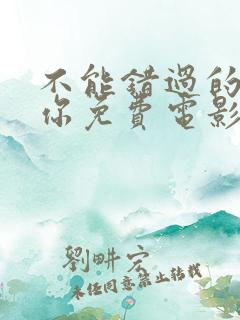 不能錯過的
你免費電影
劉畊宏
未经同意禁止转载